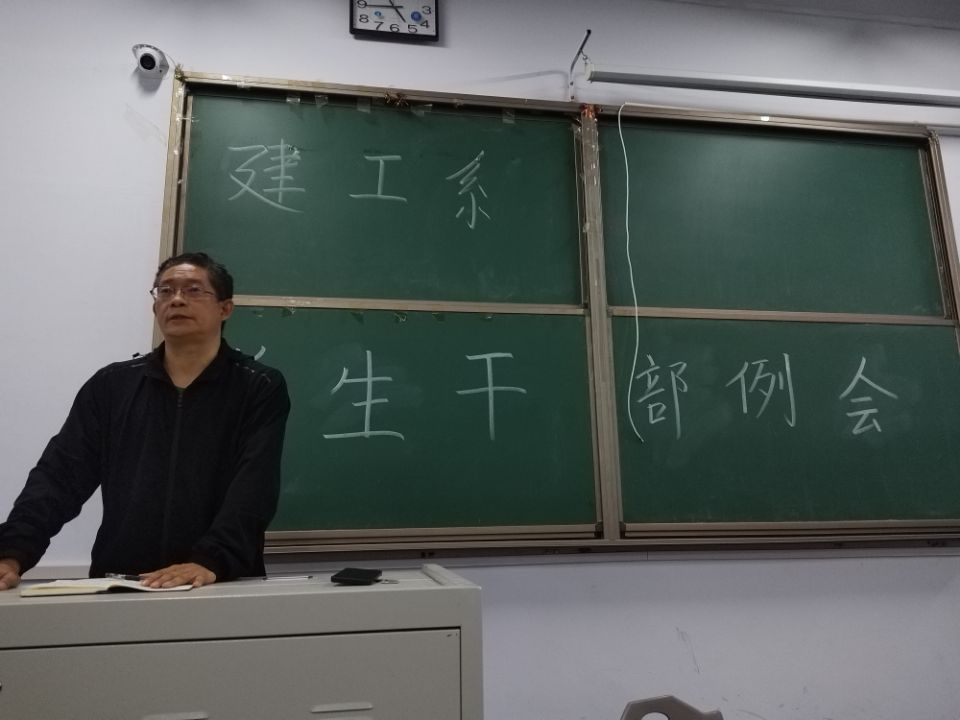 9 3
8 7 6 5 4
建工系
生干部例会